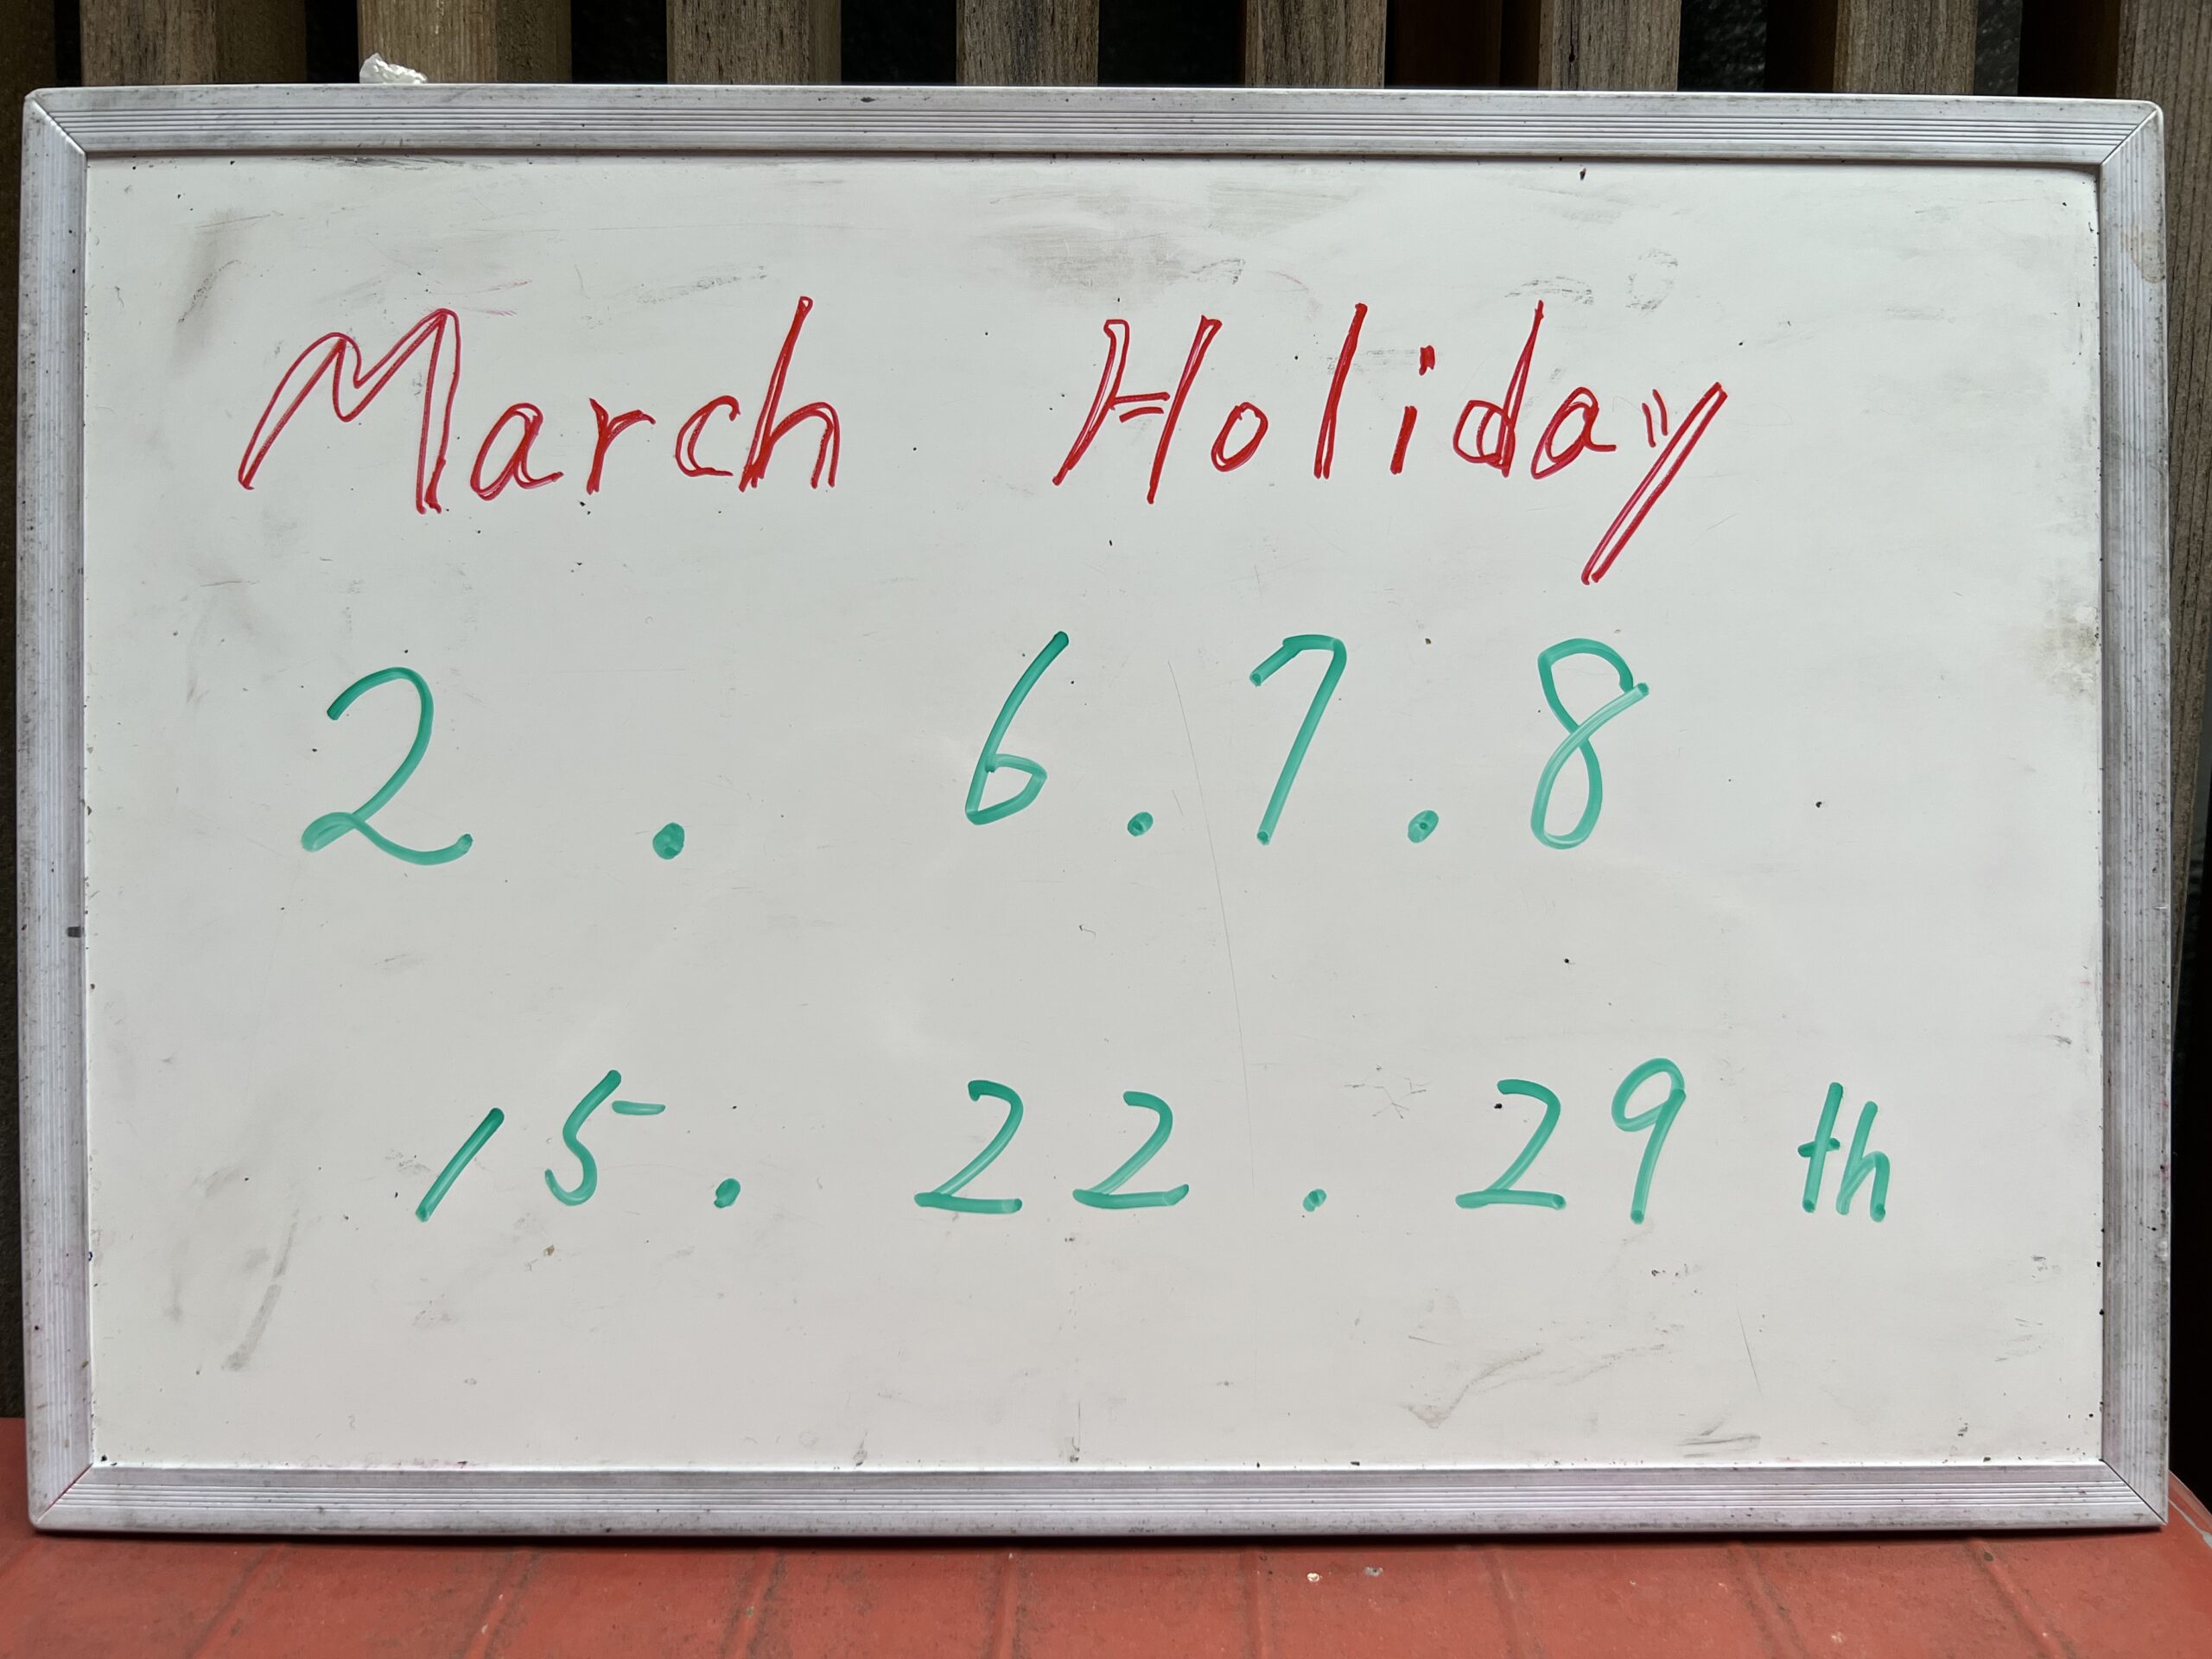 March Holiday
2 . 6 . 7 . 8
15 . 22 . 29 th